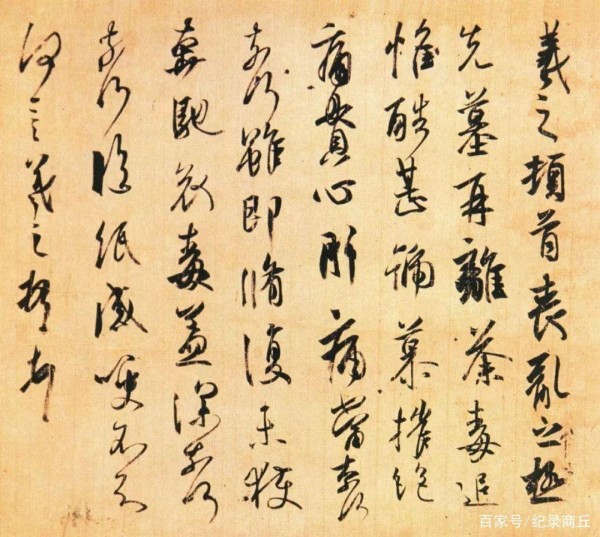 羲之頓首喪亂之極
先墓再離荼毒追
惟酷甚號慕摧絕
痛貫心肝痛當奈何
奈何雖即脩復未獲
奔馳哀毒益深奈何
奈何臨紙感哽不知
何言羲之頓首
百家号/纪录商丘